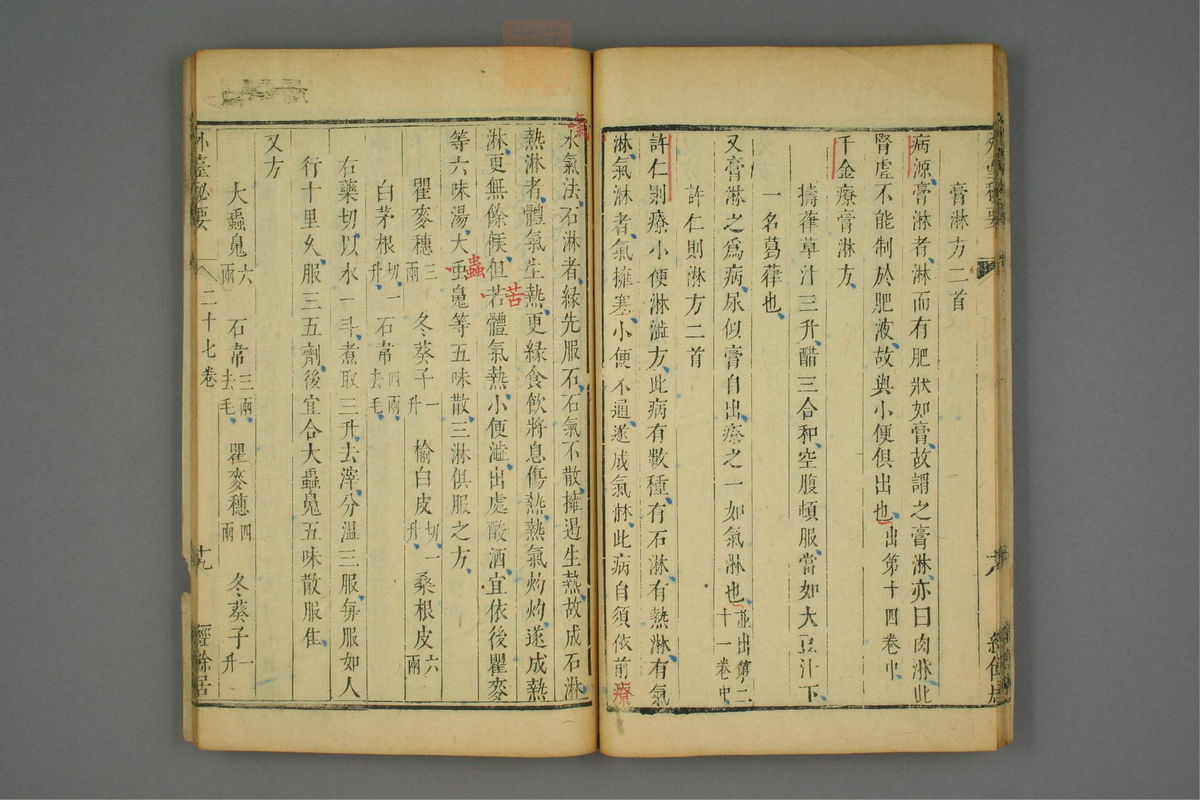 膏淋方二首
病源膏淋者淋而有肥狀如膏故謂之膏淋亦曰肉淋此
腎虛不能制於肥液故與小便俱出也出第十四卷中
千金療膏淋方
擣葎草汁三升醋三合和空腹頓服當如大豆汁下
一名葛葎也
又膏淋之為病尿似膏自出療之一如氣淋也並出第二十一卷中
許仁則淋方二首
許仁則療小便淋澁方此病有數種有石淋有熱淋有氣
淋氣淋者氣擁塞小便不通遂成氣淋此病自須依前療
氣
水氣法石淋者緣先服石石氣不散擁遏生熱故成石淋
熱淋者體氣生熱更緣食飲將息傷熱熱氣灼灼遂成熱
淋更無餘候但若體氣熱小便澁出處酸洒宜依後瞿麥
苦
等六味湯大虫䰟等五味散三淋俱服之方
蟲
瞿麥穗三兩 冬葵子一升 榆白皮切一升 桑根皮六兩
白茅根切一升 石韋四兩去毛
右藥切以水一斗煮取三升去滓分溫三服每服如人
行十里久服三五劑後宜合大蟲䰟五味散服佳
又方
大蟲䰟六兩 石韋三兩去毛 瞿麥穗四兩 冬葵子一升
外臺秘要 二十七卷 十九 經餘居